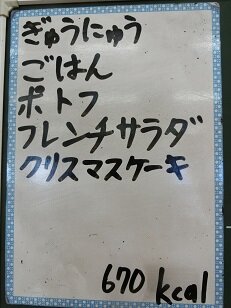 ぎゅうにゅう
ごはん
ポトフ
フレンチサラダ
クリスマスケーキ
670 kcal